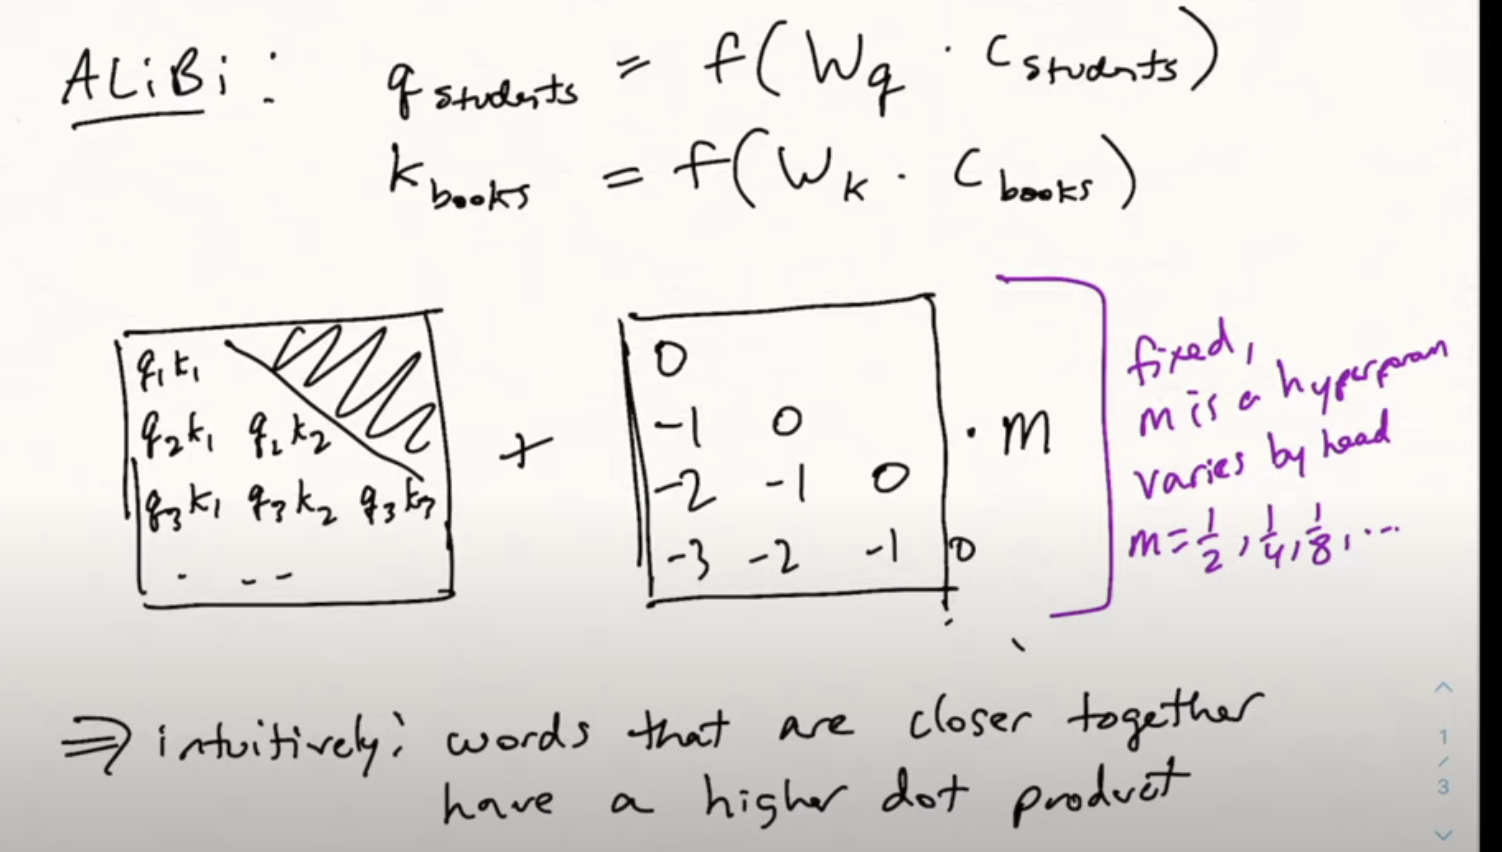 ALiBi: q students = f(Wq · c students)
k books = f(Wk · c books)
q₁k₁
q₂k₁ q₂k₂
q₃k₁ q₃k₂ q₃k₃
. - -
+
0
-1 0
-2 -1 0
-3 -2 -1 0
· m
fixed,
m is a hyperparam
varies by head
m = 1/2, 1/4, 1/8, ...
⇒ intuitively: words that are closer together
have a higher dot product
1
/
3